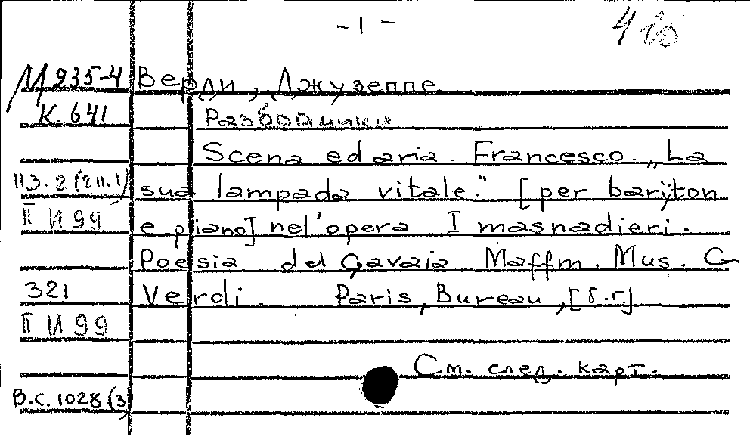 -1-
М 935-4 Верди, Джузеппе
К. 641 Разбойники
Scena ed aria Francesco „La
113.2 (2 п.1) sua lampada vitale." [per bariton
II И 99 e piano] nel'opera I masnadieri.
Poesia del Cavaia Maffm. Mus. G
321 Verdi. Paris, Bureau, [б.г.]
II И 99
См. след. карт.
В.С. 1028 (3)